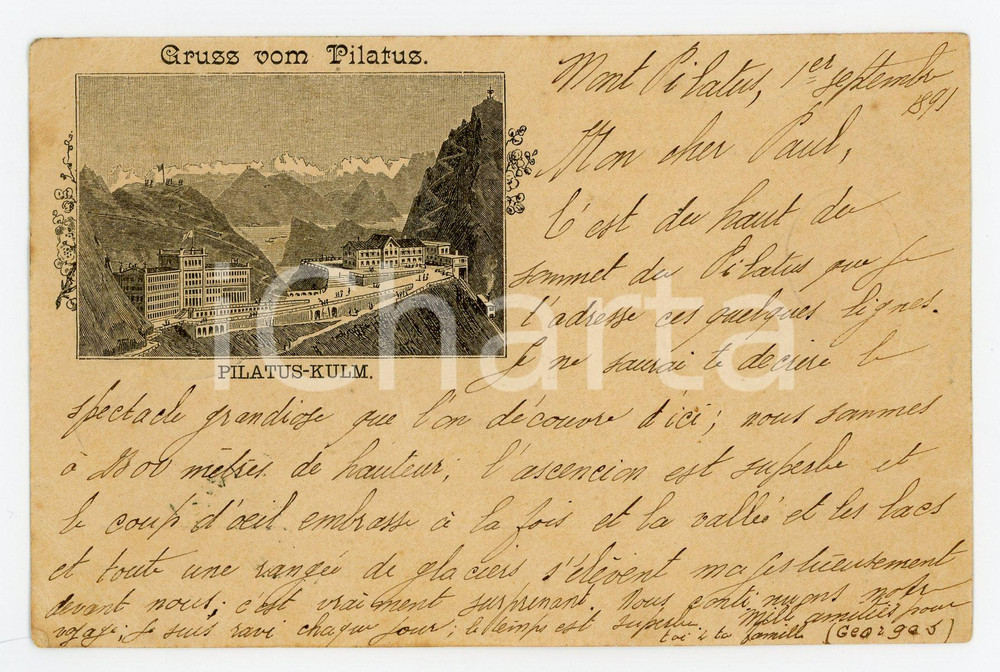 Gruss vom Pilatus.
PILATUS-KULM.
Mont Pilatus, 1er septembre
1891
Mon cher Paul,
C'est du haut du
sommet du Pilatus que je
t'adresse ces quelques lignes.
Je ne saurai te decrire le
spectacle grandiose que l'on découvre d'ici; nous sommes
à 2300 mètres de hauteur, l'ascencion est superbe et
le coup d'oeil embrasse à la fois et la vallée et les lacs
et toute une rangée de glaciers s'élèvent majestueusement
devant nous; c'est vraiment surprenant. Nous continuons notre
voyage; je suis ravi chaque jour; le temps est superbe mille amitiés pour
toi & ta famille (Georges)
iCharta